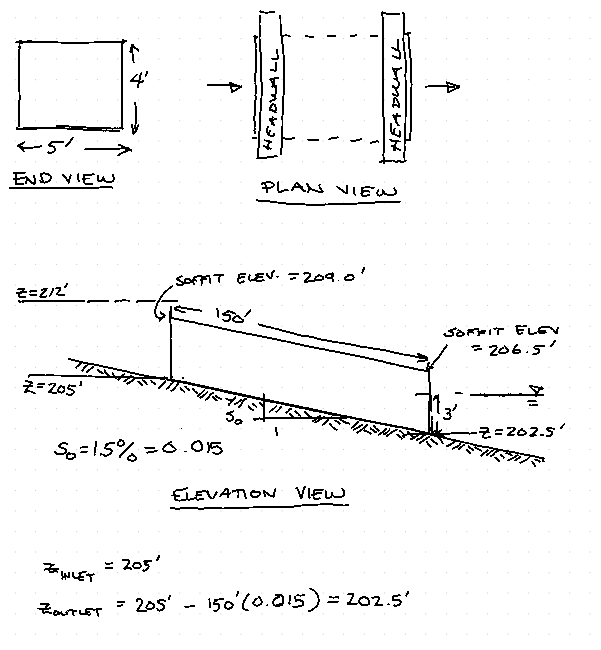 4'
5'
END VIEW
HEADWALL
HEADWALL
PLAN VIEW
SOFFIT ELEV. = 209.0'
Z=212'
150'
SOFFIT ELEV
= 206.5'
Z=205'
3'
S₀
1
Z=202.5'
S₀=1.5% = 0.015
ELEVATION VIEW
Z INLET = 205'
Z OUTLET = 205' - 150'(0.015) = 202.5'